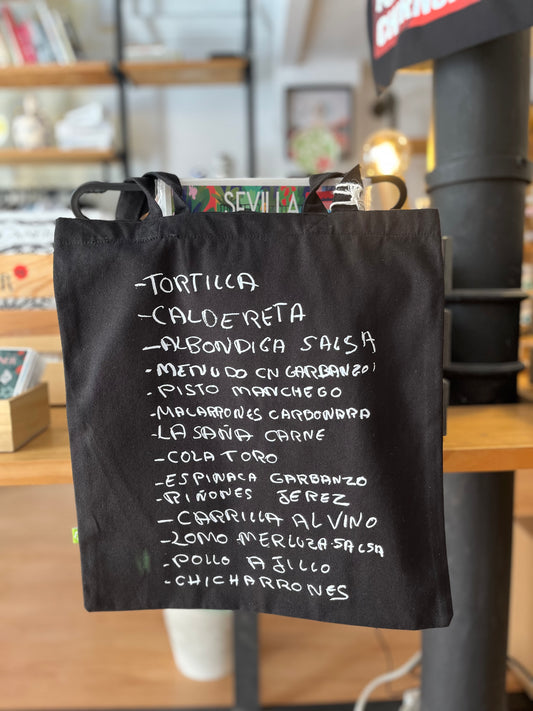 SEVILLA
-TORTILLA
-CALDERETA
-ALBONDIGA SALSA
-MENUDO CN GARBANZO
-PISTO MANCHEGO
-MACARRONES CARBONARA
-LA SAÑA CARNE
-COLA TORO
-ESPINACA GARBANZO
-RIÑONES JEREZ
-CARRILLA AL VINO
-LOMO MERLUZA-SALSA
-POLLO AJILLO
-CHICHARRONES